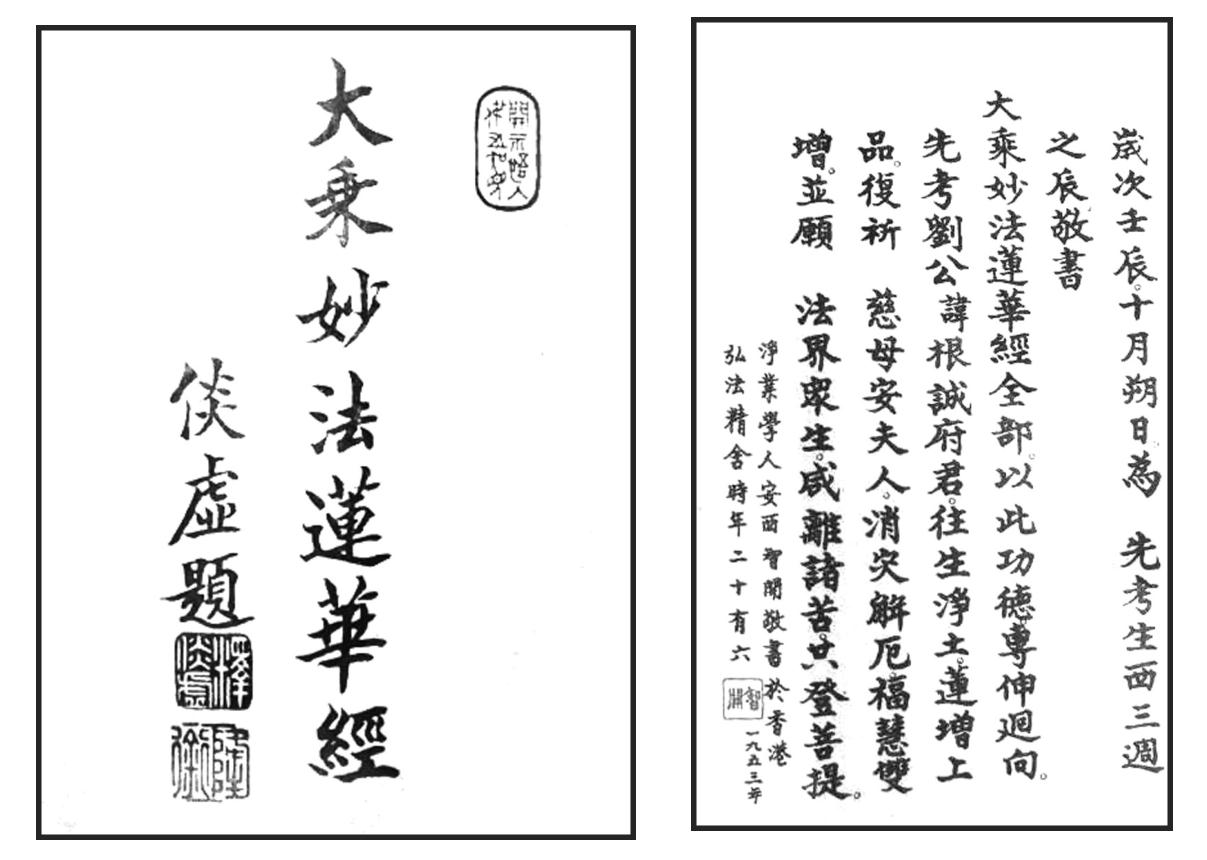 大乘妙法蓮華經
倓虛題
歲次壬辰。十月朔日為　先考生西三週
之辰敬書
大乘妙法蓮華經全部。以此功德專伸迴向。
先考劉公諱根誠府君。往生淨土。蓮增上
品。復祈　慈母安夫人。消灾解厄。福慧雙
增。並願　法界眾生。咸離諸苦。共登菩提。
淨業學人安西智開敬書於香港
一九五三年
弘法精舍時年二十有六
智開